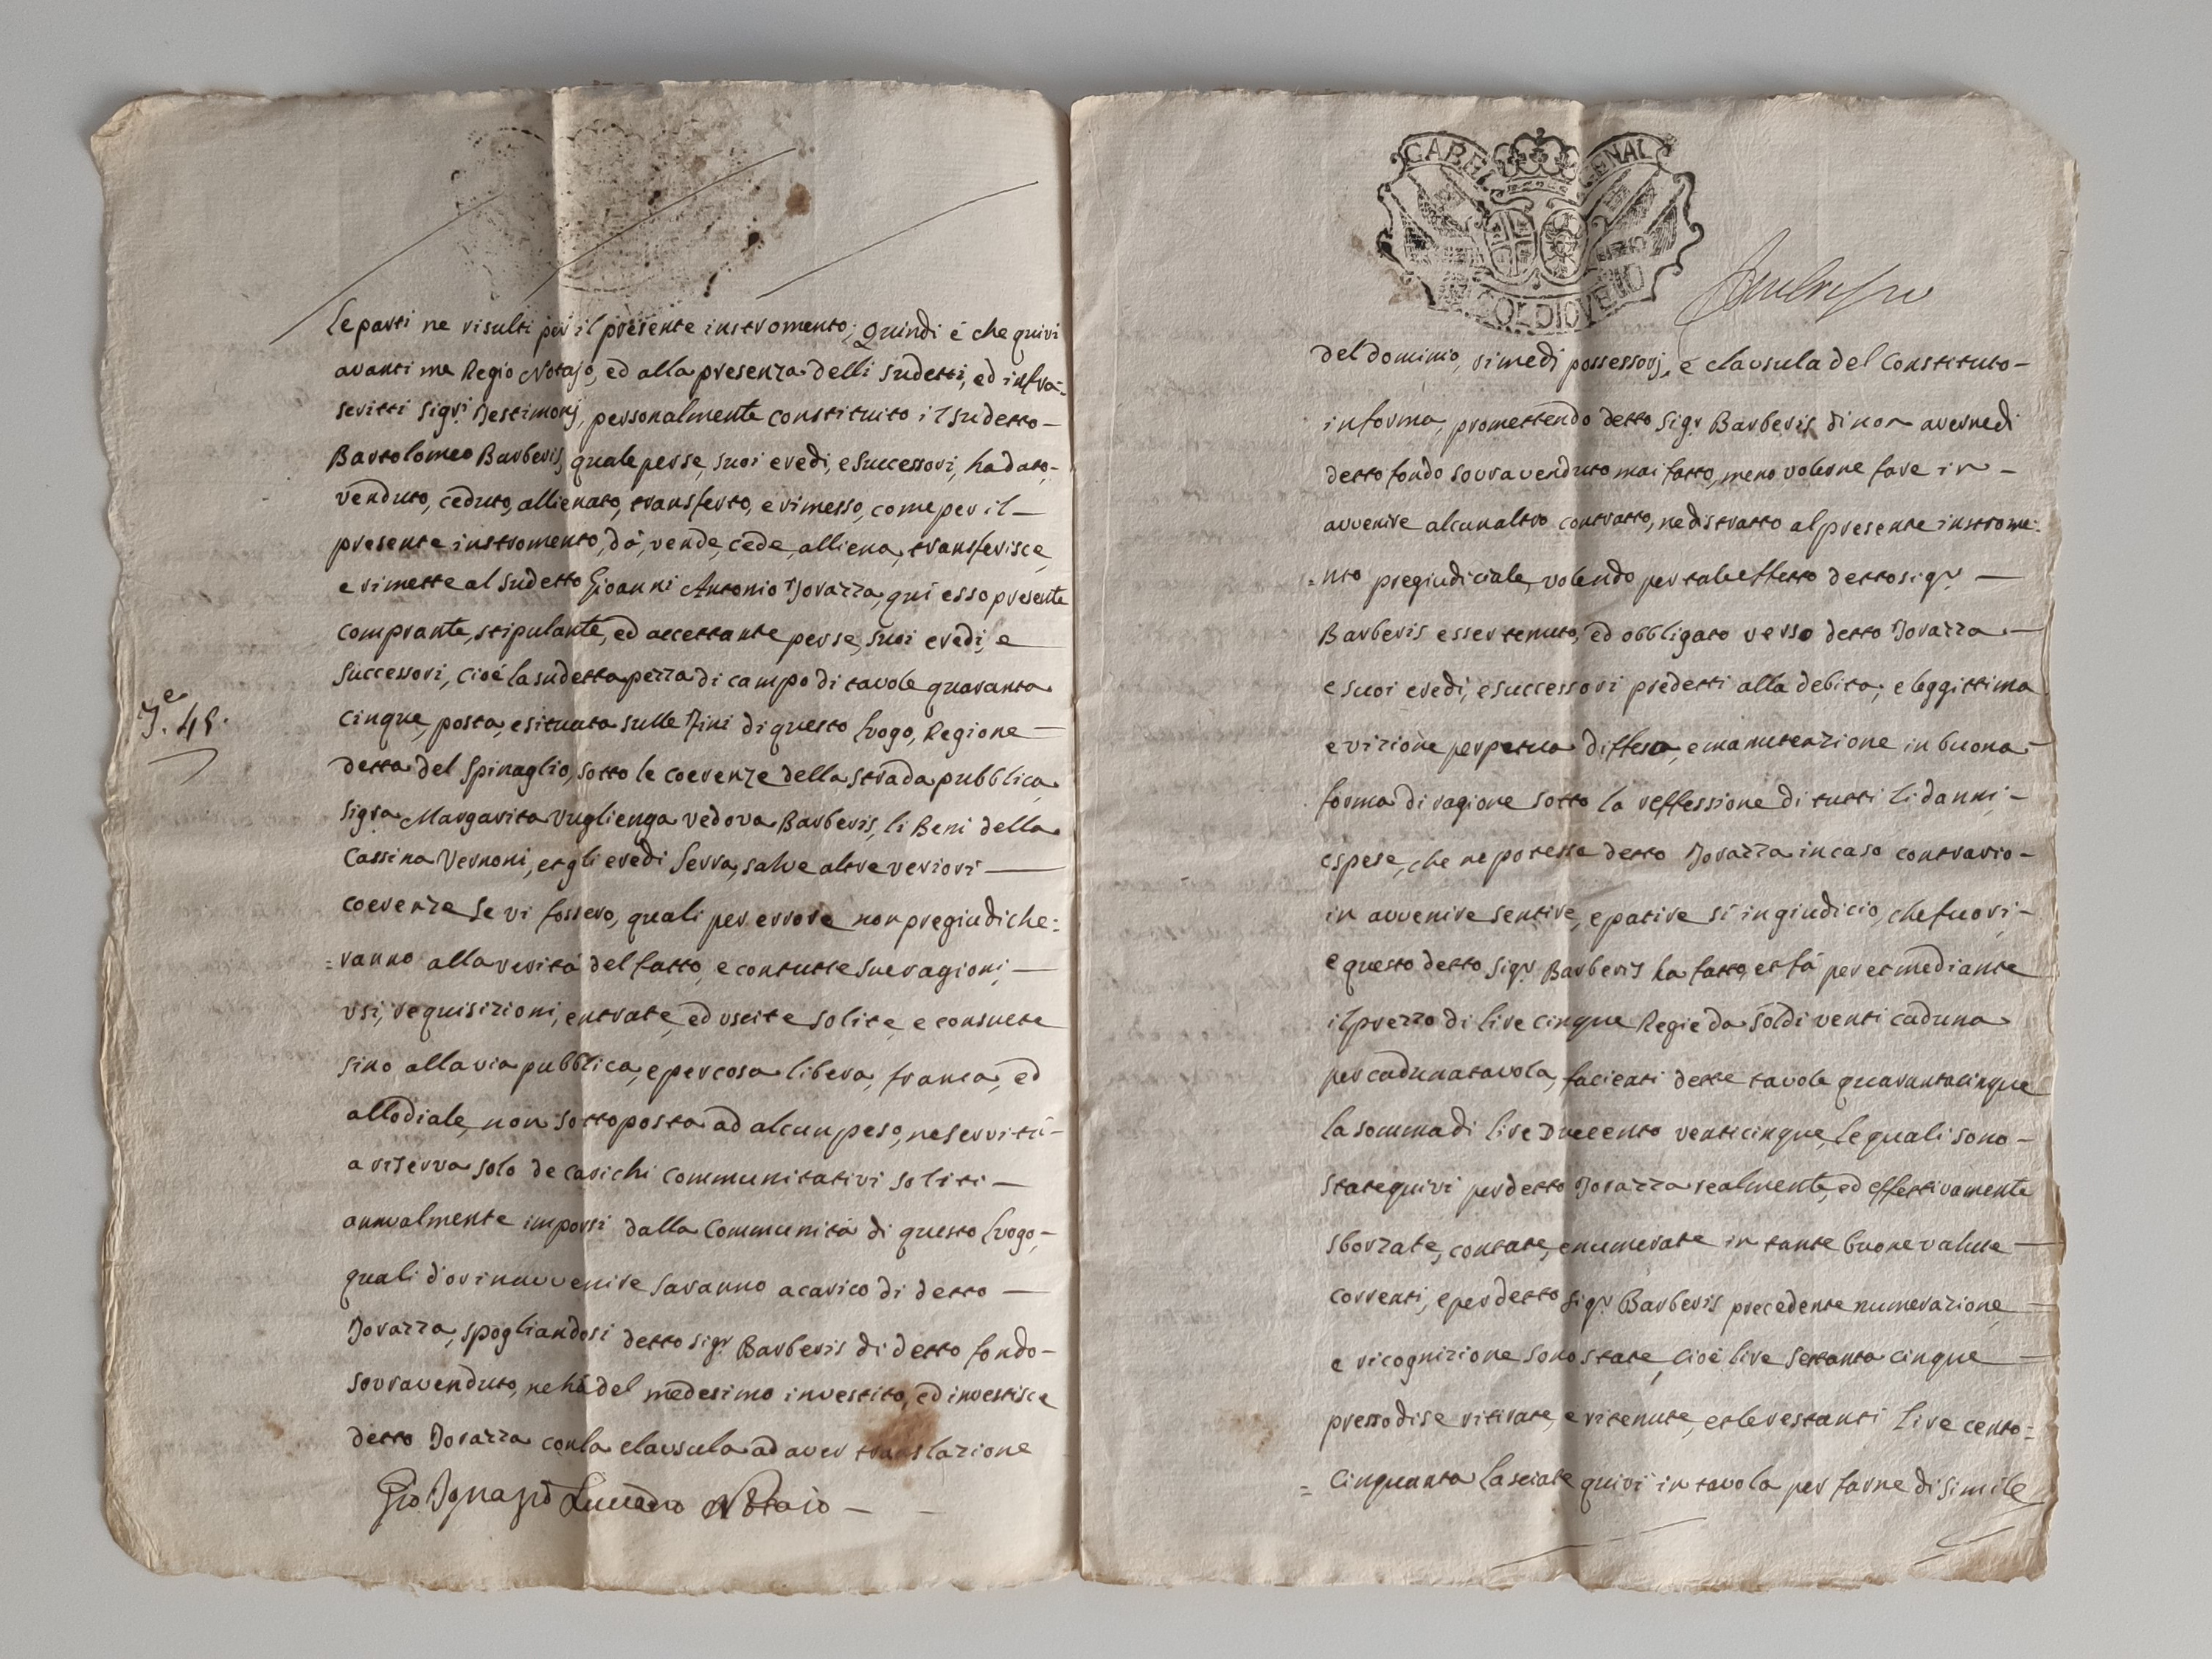 le parti ne risulti per il presente instromento; Quindi é che quivi
avanti me Regio Notajo, ed alla presenza delli sudetti, ed infra=
scritti Sigri Testimonj, personalmente constituito il sudetto-
Bartolomeo Barberis, quale per se, suoi eredi, e successori, ha dato,-
venduto, ceduto, allienato, transferto, e rimesso, come per il-
presente instromento, dà, vende, cede, alliena, transferisce,
e rimette al sudetto Gioanni Antonio Tovazza, qui esso presente
comprante, stipulante, ed accettante per se, suoi eredi, e
Successori, cioé la sudetta pezza di campo di tavole quaranta
Te. 45.
cinque, posta, e situata sulle Fini di questo luogo, Regione-
detta del Spinaglio, sotto le coerenze della strada pubblica
Sigra Margarita Vuglienga vedova Barberis, li Beni della
Cassina Vernoni, et gli eredi Serra, salve altre veriori-
coerenze se vi fossero, quali per errore non pregiudiche:
=ranno alla verità del fatto, e con tutte sue ragioni,-
usi, requisizioni, entrate, ed uscite solite, e consuete
sino alla via pubblica, e per cosa libera, franca, ed
allodiale, non sottoposta ad alcun peso, ne servitù-
a riserva solo de carichi communitativi soliti-
annualmente imporsi dalla Communità di questo luogo,-
quali d'or in avvenire saranno a carico di detto-
Tovazza, spogliandosi detto Sigr Barberis di detto fondo-
sovravenduto, ne hà del medesimo investito, ed investisce
detto Tovazza con la clausula ad aver translazione
Gio Ignazio Notaio-
CABE ENAL
SOLDIOVEIO
del dominio, rimedi possessorj, e clausula del Constituto-
in forma, promettendo detto Sigr Barberis di non averne di
detto fondo sovravenduto mai fatto, meno volerne fare in-
avvenire alcun altro contratto, ne distratto al presente instrome:
=nto pregiudiciale, volendo per tale effetto detto Sigr-
Barberis esser tenuto, ed obbligato verso detto Tovazza-
e suoi eredi, e successori predetti alla debita, e leggittima
evizione perpetua diffesa, e manutenzione in buona-
forma di ragione sotto la reffessione di tutti li danni,-
e spese, che ne potesse detto Tovazza in caso contrario-
in avvenire sentire, e patire sì in giudicio, che fuori,-
e questo detto Sigr Barberis ha fatto, et fà per et mediante
il prezzo di lire cinque Regie da soldi venti caduna
per caduna tavola, facienti dette tavole quarantacinque
la somma di lire Duecento venticinque, le quali sono-
state quivi per detto Tovazza realmente, ed effettivamente
sborzate, contate, e numerate in tante buone valute-
correnti, e per detto Sigr Barberis precedente numerazione,-
e ricognizione sono state, cioé lire settanta cinque-
presso di se ritirate, e ritenute, et le restanti lire cento=
=cinquanta lasciate quivi in tavola per farne di simile